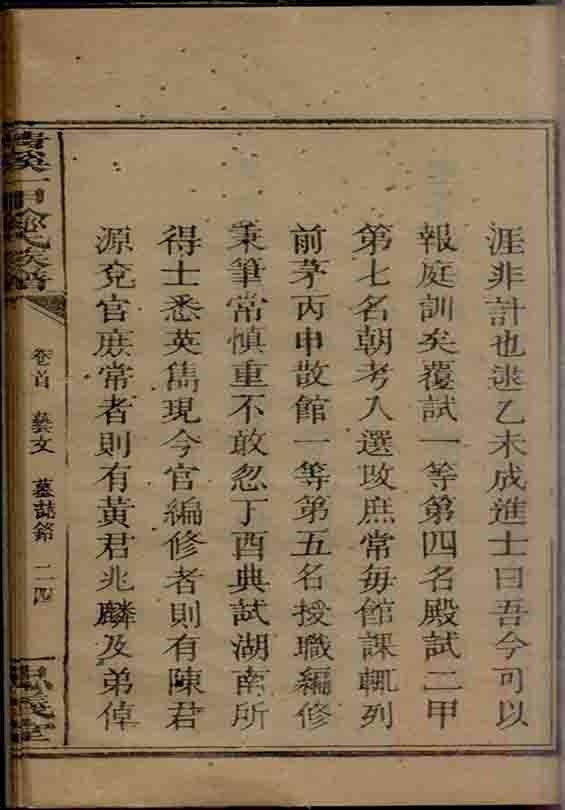 涯非計也逮乙未成進士曰吾今可以
報庭訓矣覆試一等第四名殿試二甲
第七名朝考入選改庶常每館課輒列
前茅丙申散館一等第五名授職編修
秉筆常慎重不敢忽丁酉典試湖南所
得士悉英雋現今官編修者則有陳君
源兖官庶常者則有黃君兆麟及弟倬
甲 氏族譜
卷首 藝文 墓誌銘 二四
堂